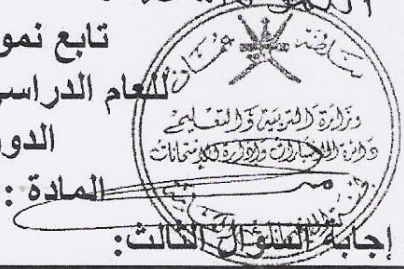 تابع نمو
للعام الدراسي
الدور
المادة :
إجابة السؤال الثالث:
سلطنة عمان
وزارة التربية والتعليم
دائرة الاختبارات وإدارة الامتحانات